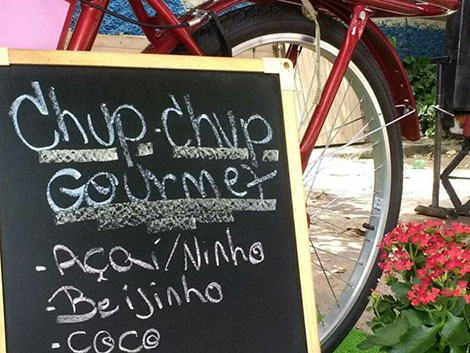 Chup-Chup
Gourmet
-Açaí/Ninho
-Beijinho
-Coco